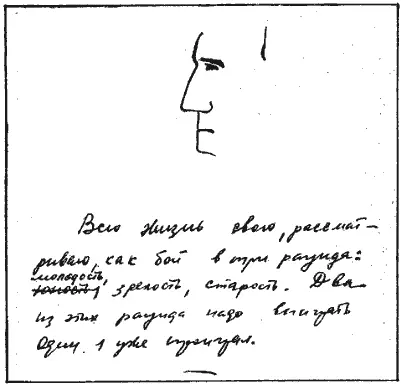 Всю жизнь свою, рассмат-
риваю, как бой в три раунда:
молодость,
юность, зрелость, старость. Два
из этих раунда надо выиграть
Один я уже проиграл.